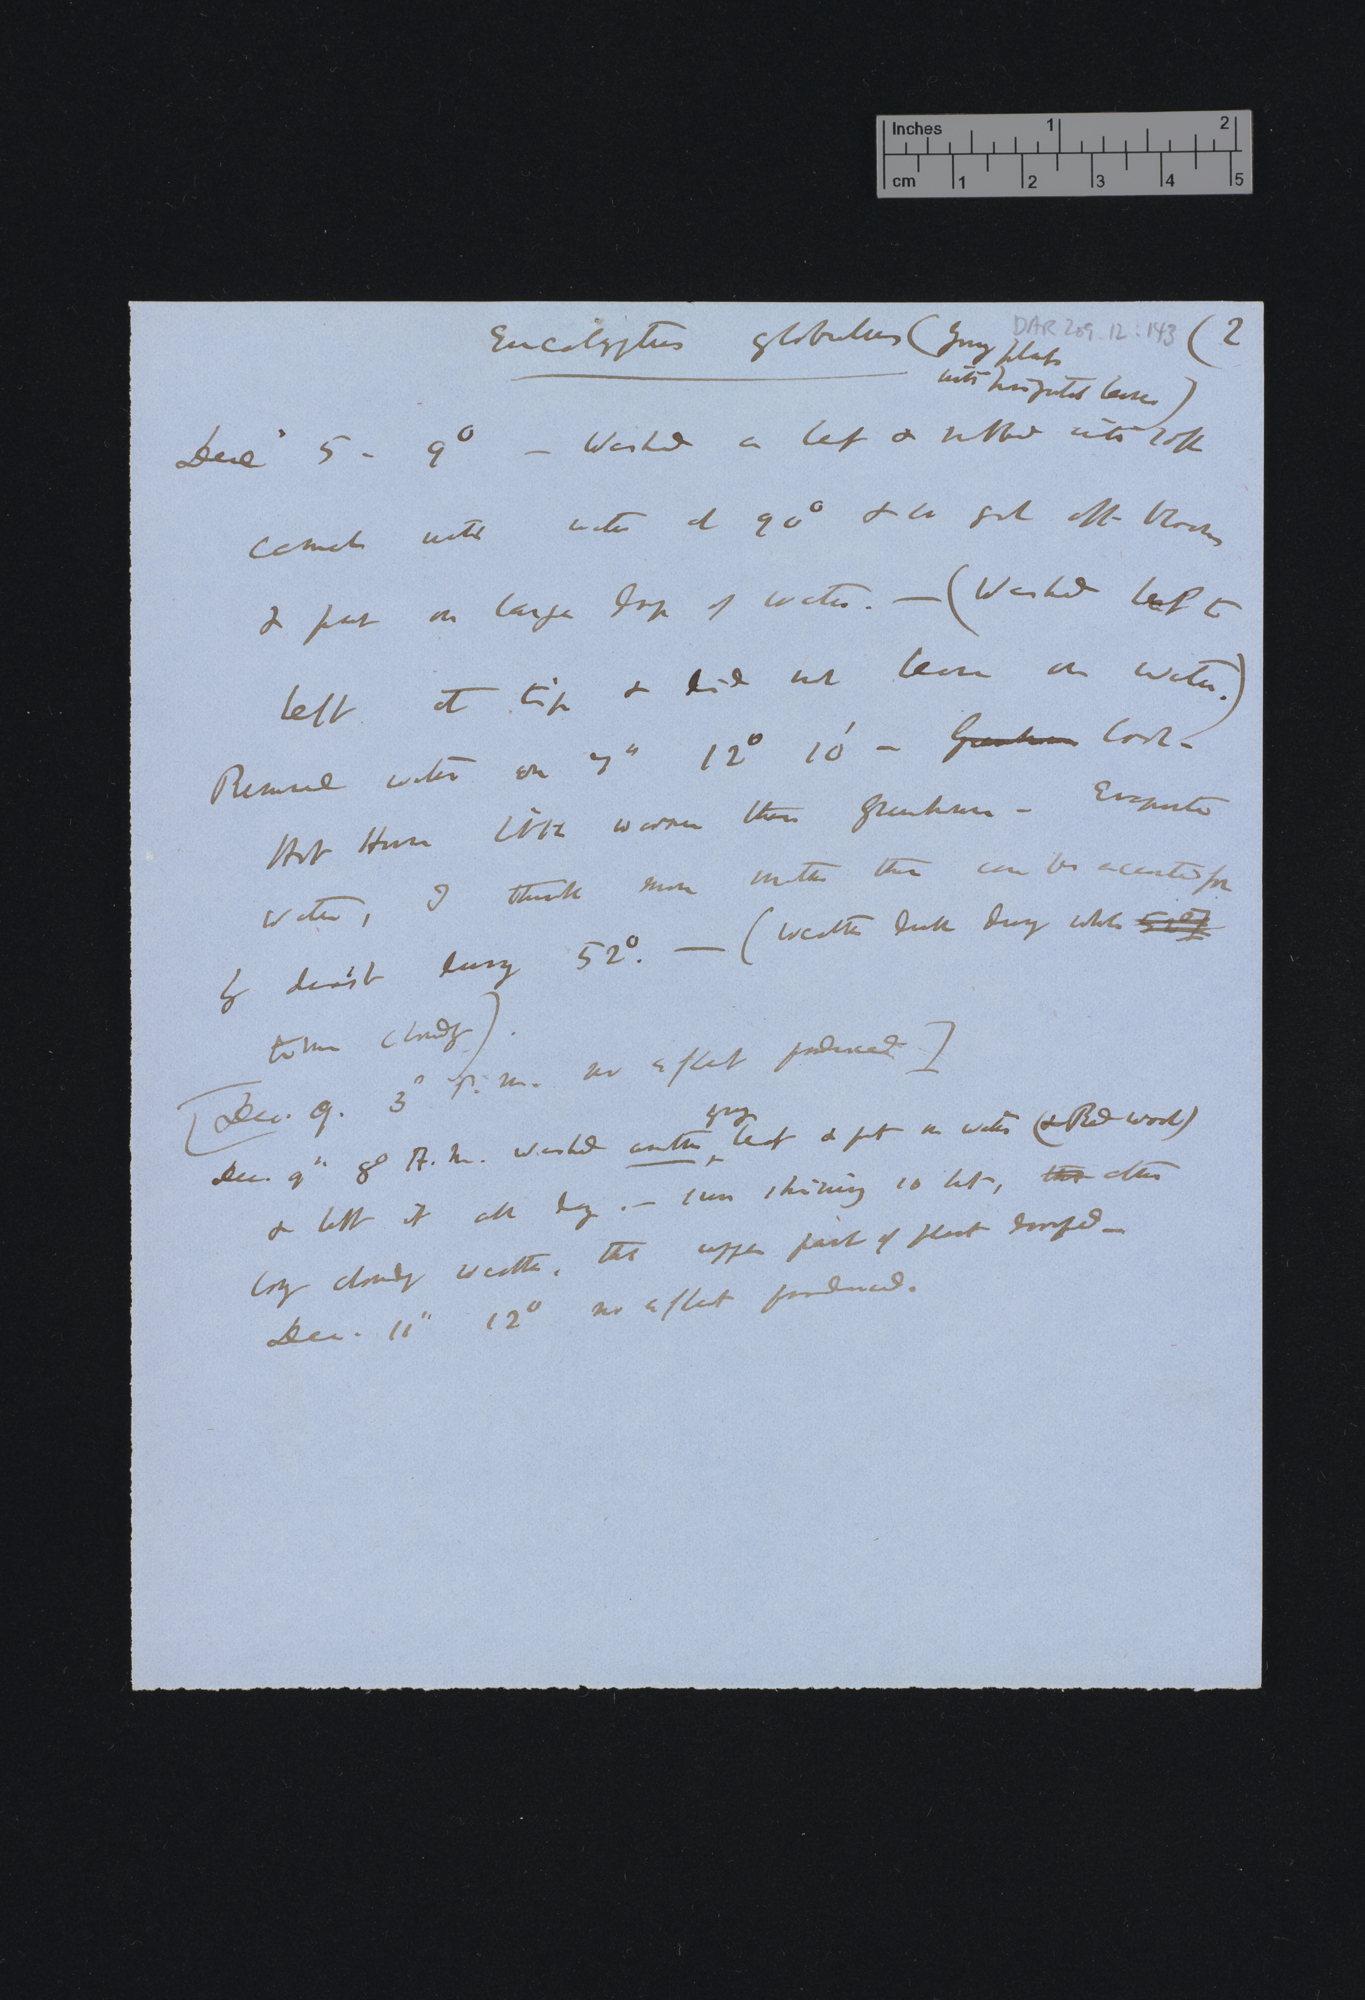 Inches 1 2
cm 1 2 3 4 5
DAR 209.12:143
(2
Eucalyptus globulus (young plants
with horizontal leaves)
Dec 5 - 9° — Washed a leaf & rubbed with soft
camel with water at 90° & so got off bloom
& put on large drop of water. — (Washed leaf to
left at tip & did not leave on water.)
Removed water on 7" 12° 10' — Greenhouse Cool-
Hot House little warmer than greenhouse — Evaporated
water, I think more rather than can be accounted for
by during 52°. — (Weather dull during whole
time cloudy).
[Dec. 9. 3° P.m. no effect produced]
Dec. 9" 8° A.m. washed another young leaf & put on water (& Red wool)
& left it all day. — sun shining so hot, the after
long cloudy weather, that upper part of plant drooped —
Dec. 11" 12° no effect produced.